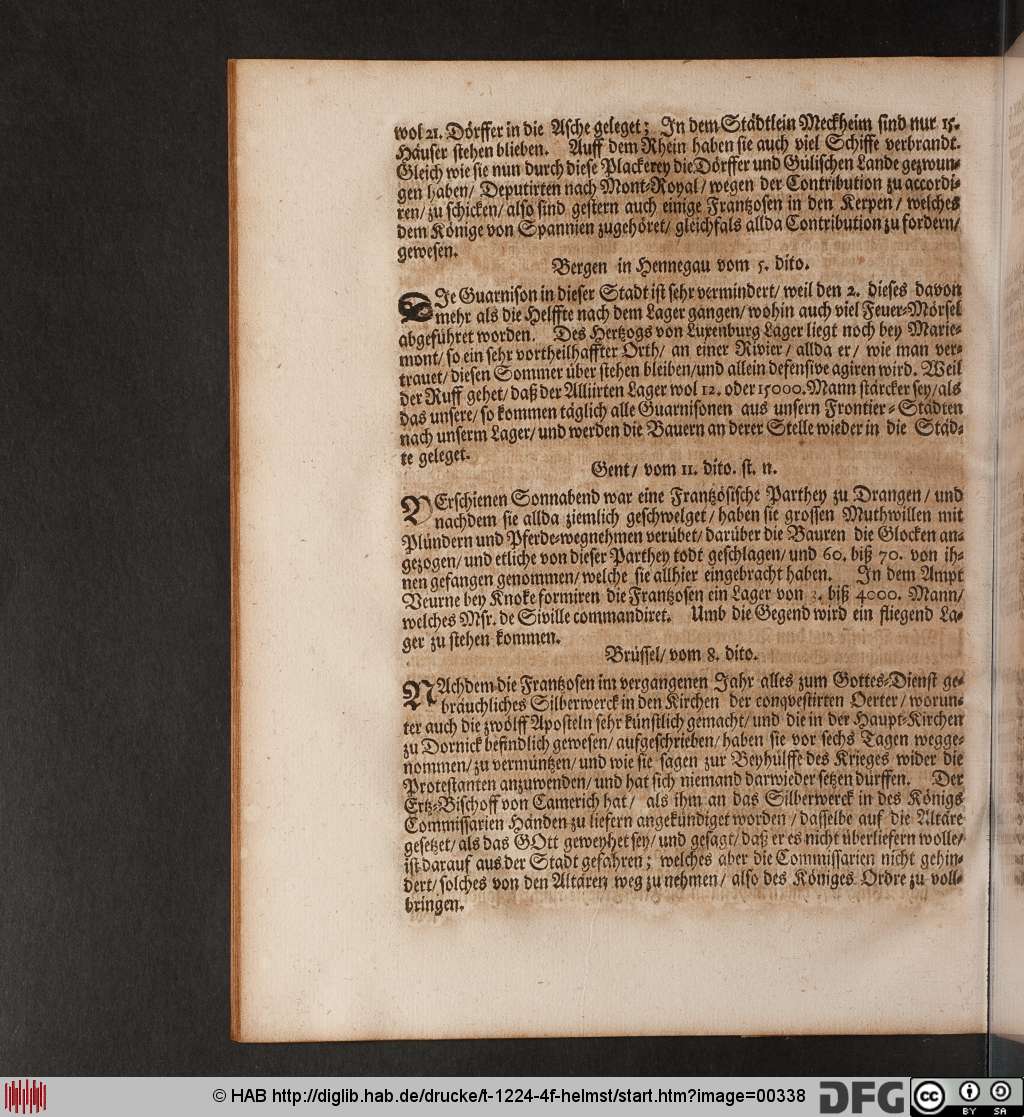 wol 21. Dörffer in die Asche geleget; In dem Städtlein Meckheim sind nur 15.
Häuser stehen blieben. Auff dem Rhein haben sie auch viel Schiffe verbrandt.
Gleich wie sie nun durch diese Plackerey die Dörffer und Gülischen Lande gezwun-
gen haben/ Deputirten nach Mont-Royal/ wegen der Contribution zu accordi-
ren/ zu schicken/ also sind gestern auch einige Frantzosen in den Kerpen/ welches
dem Könige von Spannien zugehöret/ gleichfals allda Contribution zu fordern/
gewesen.
Bergen in Hennegau vom 5. dito.
DIe Guarnison in dieser Stadt ist sehr vermindert/ weil den 2. dieses davon
mehr als die Helffte nach dem Lager gangen/ wohin auch viel Feuer-Mörsel
abgeführet worden. Des Hertzogs von Luxenburg Lager liegt noch bey Marie-
mont/ so ein sehr vortheilhaffter Orth/ an einer Rivier/ allda er/ wie man ver-
trauet/ diesen Sommer über stehen bleiben/ und allein defensive agiren wird. Weil
der Ruff gehet/ daß der Alliirten Lager wol 12. oder 15000. Mann stärcker sey/ als
das unsere/ so kommen täglich alle Guarnisonen aus unsern Frontier-Städten
nach unserm Lager/ und werden die Bauern an derer Stelle wieder in die Städ-
te geleget.
Gent/ vom 11. dito. st. n.
VErschienen Sonnabend war eine Frantzösische Parthey zu Drangen/ und
nachdem sie allda ziemlich geschwelget/ haben sie grossen Muthwillen mit
Plündern und Pferde-wegnehmen verübet/ darüber die Bauren die Glocken an-
gezogen/ und etliche von dieser Parthey todt geschlagen/ und 60. biß 70. von ih-
nen gefangen genommen/ welche sie allhier eingebracht haben. In dem Ampt
Veurne bey Knoke formiren die Frantzosen ein Lager von 3. biß 4000. Mann/
welches Msr. de Siville commandiret. Umb die Gegend wird ein fliegend La-
ger zu stehen kommen.
Brüssel/ vom 8. dito.
NAchdem die Frantzosen im vergangenen Jahr alles zum Gottes-Dienst ge-
bräuchliches Silberwerck in den Kirchen der conqvestirten Oerter/ worun-
ter auch die zwölff Aposteln sehr künstlich gemacht/ und die in der Haupt-Kirchen
zu Dornick befindlich gewesen/ aufgeschrieben/ haben sie vor sechs Tagen wegge-
nommen/ zu vermüntzen/ und wie sie sagen zur Beyhülffe des Krieges wider die
Protestanten anzuwenden/ und hat sich niemand darwieder setzen dürffen. Der
Ertz-Bischoff von Camerich hat/ als ihm an das Silberwerck in des Königs
Commissarien Händen zu liefern angekündiget worden/ dasselbe auf die Altäre
gesetzet/ als das GOtt geweyhet sey/ und gesagt/ daß er es nicht überliefern wolle/
ist darauf aus der Stadt gefahren; welches aber die Commissarien nicht gehin-
dert/ solches von den Altären weg zu nehmen/ also des Königes Ordre zu voll-
bringen.
© HAB http://diglib.hab.de/drucke/t-1224-4f-helmst/start.htm?image=00338
DFG
cc
BY SA